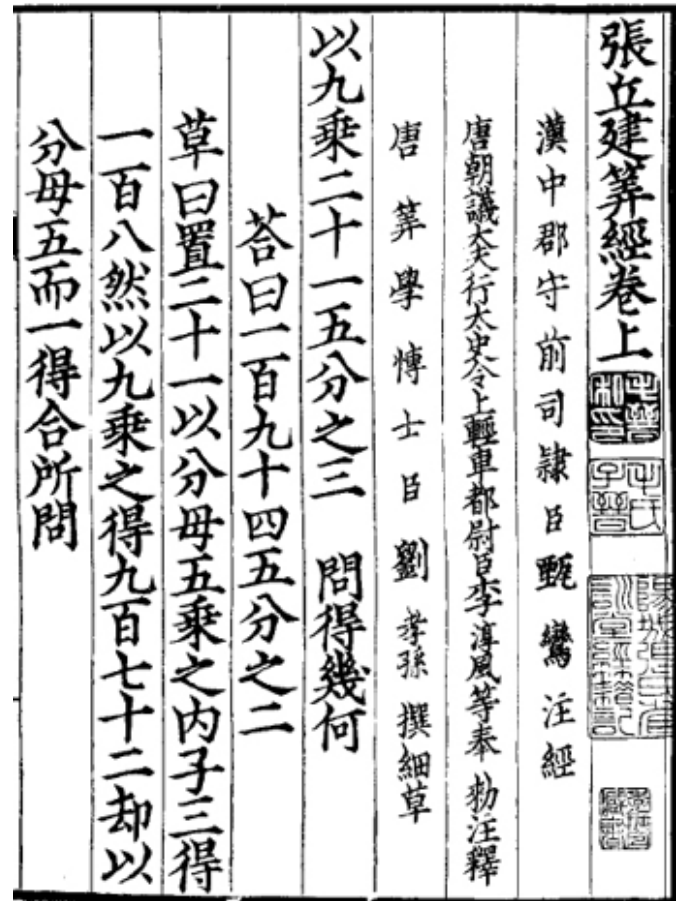 張丘建筭經卷上
漢中郡守前司隸臣甄鸞注經
唐朝議大夫行太史令上輕車都尉臣李淳風等奉敕注釋
唐筭學博士臣劉孝孫撰細草
以九乘二十一五分之三 問得幾何
荅曰一百九十四五分之二
草曰置二十一以分母五乘之内子三得
一百八然以九乘之得九百七十二却以
分母五而一得合所問